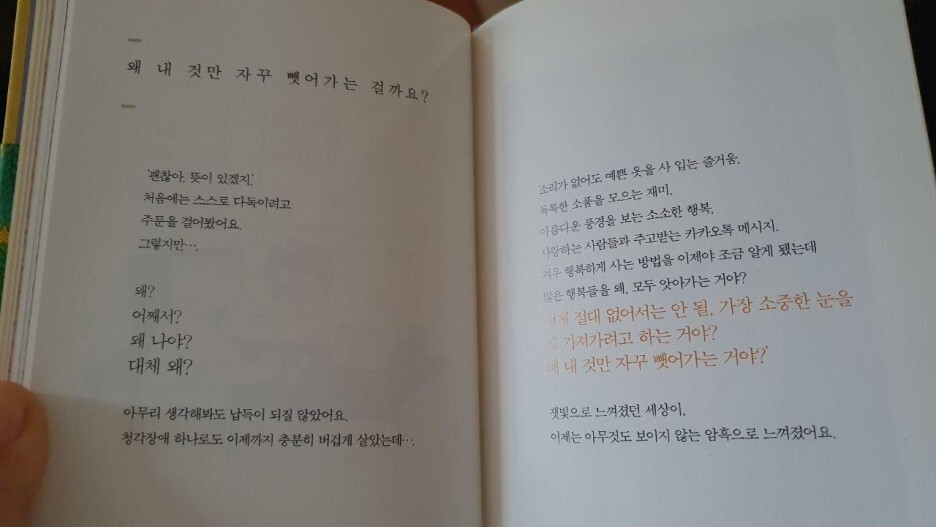 왜 내 것만 자꾸 뺏어가는 걸까요?
'괜찮아, 뜻이 있겠지.'
처음에는 스스로 다독이려고
주문을 걸어봤어요.
그렇지만….
왜?
어째서?
왜 나야?
대체 왜?
아무리 생각해봐도 납득이 되질 않았어요.
청각장애 하나로도 이제까지 충분히 버겁게 살았는데….
소리가 없어도 예쁜 옷을 사 입는 즐거움,
독특한 소품을 모으는 재미,
아름다운 풍경을 보는 소소한 행복,
사랑하는 사람들과 주고받는 카카오톡 메시지.
겨우 행복하게 사는 방법을 이제야 조금 알게 됐는데
많은 행복들을 왜, 모두 앗아가는 거야?
절대 없어서는 안 될, 가장 소중한 눈을
가져가려고 하는 거야?
왜 내 것만 자꾸 뺏어가는 거야?'
잿빛으로 느껴졌던 세상이,
이제는 아무것도 보이지 않는 암흑으로 느껴졌어요.